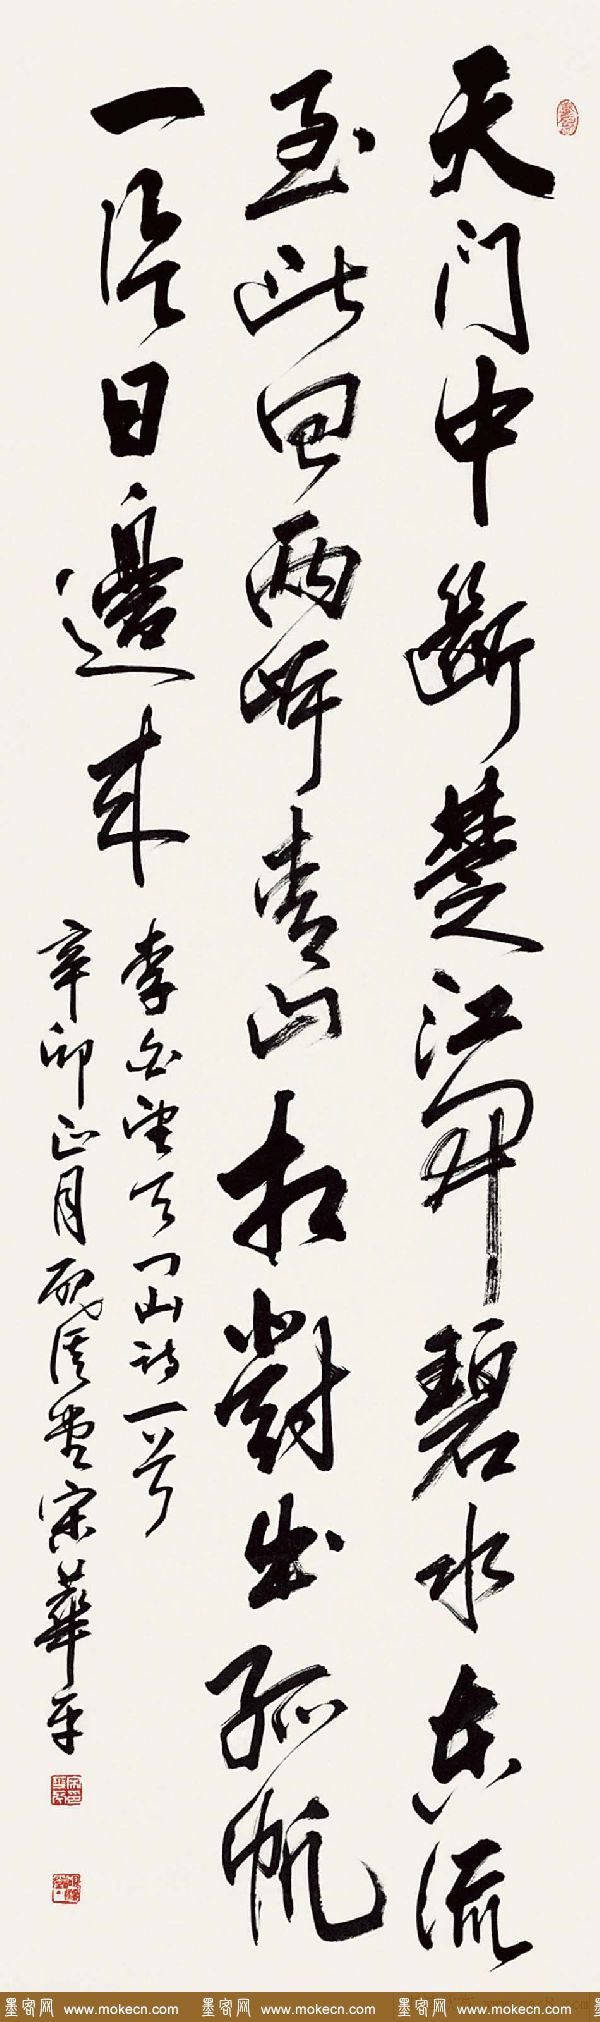 天门中斷楚江開碧水东流
至此回两岸青山相對出孤帆
一片日邊来
李白望天门山诗一首
辛卯正月砚溪堂宋華平
墨客网 www.mokecn.com 墨客网 www.mokecn.com 墨客网 www.mokecn.com